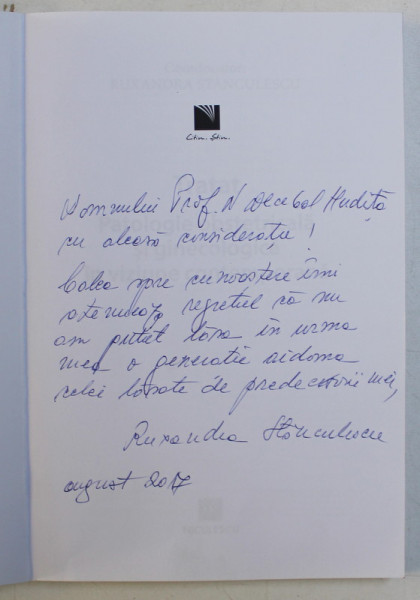 Citim. Știm.
Domnului Prof. N Decebal Hudiță
cu aleasă considerație!
Calea spre cunoaștere îmi
atenuează regretul că nu
am putut lăsa în urma
mea o generație aidoma
celei lăsate de predecesorii mei,
Ruxandra Stănculescu
august 2017